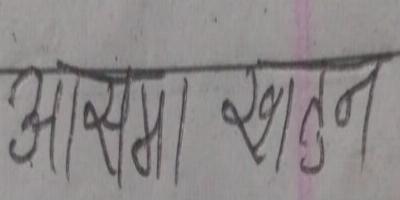 आसमा खातुन